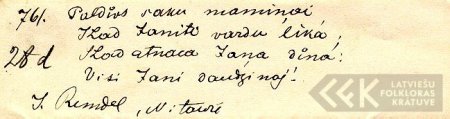 761. Paldivs saku mamiņai
Kad Janīti vardu lika;
28 d Kad atnaca Jana dina:
Visi Jani daudzinaj!
J. Rendel, Nitaurē
LATVIEŠU
FOLKLORAS
KRATUVE